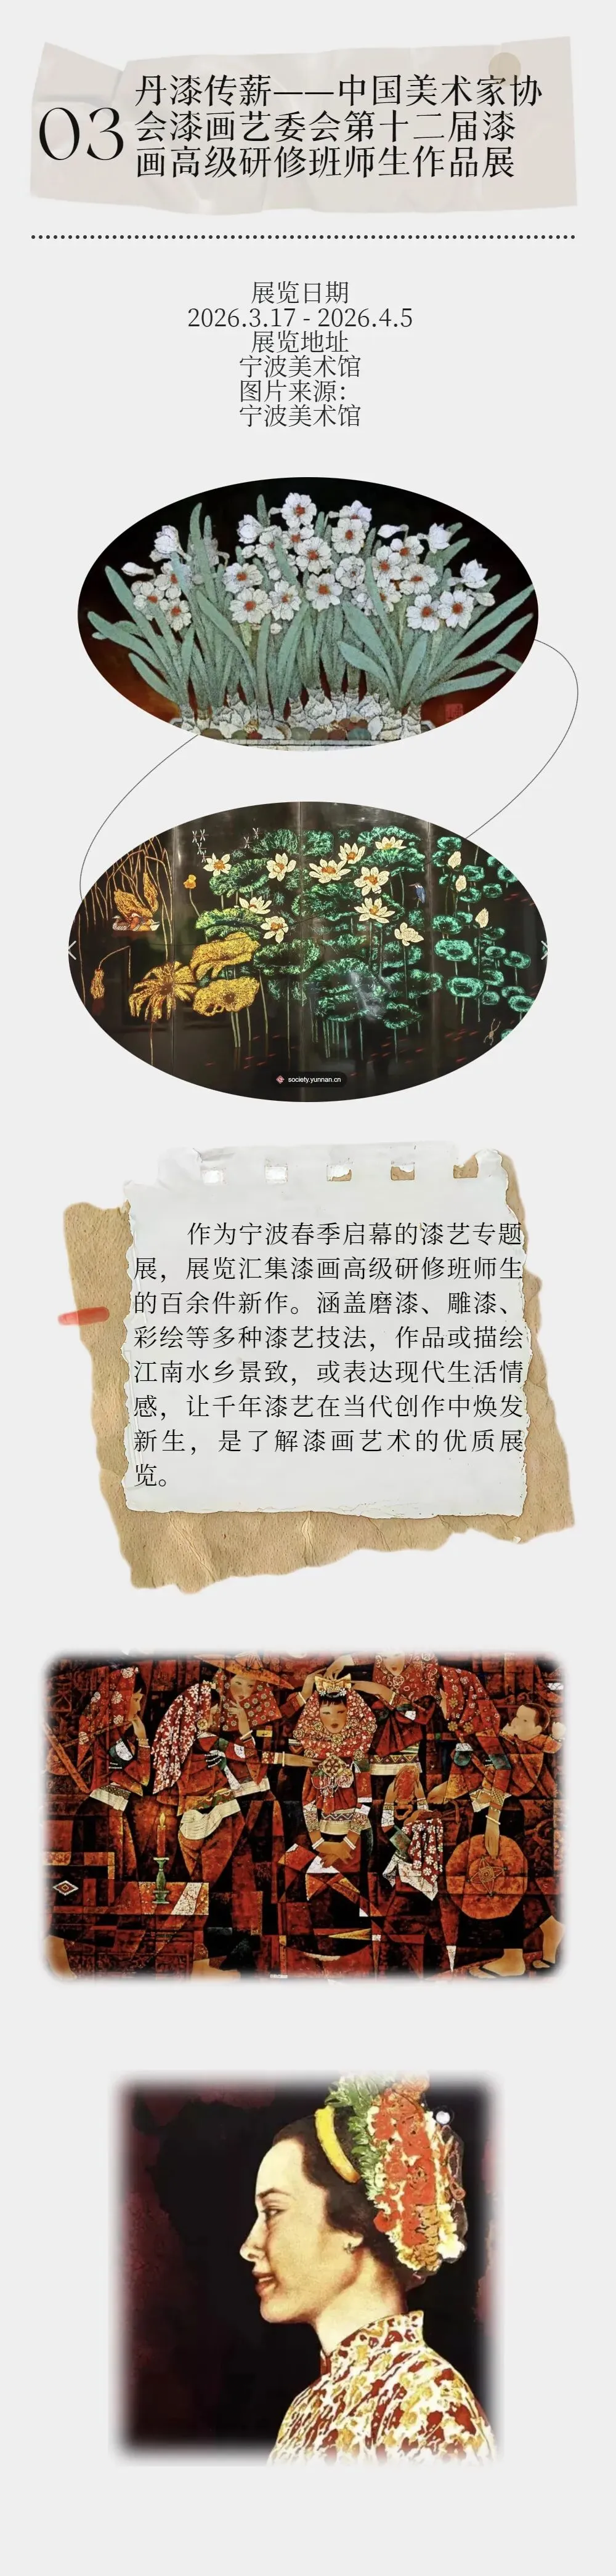 03
丹漆传薪——中国美术家协
会漆画艺委会第十二届漆
画高级研修班师生作品展
展览日期
2026.3.17 - 2026.4.5
展览地址
宁波美术馆
图片来源：
宁波美术馆
society.yunnan.cn
作为宁波春季启幕的漆艺专题
展，展览汇集漆画高级研修班师生
的百余件新作。涵盖磨漆、雕漆、
彩绘等多种漆艺技法，作品或描绘
江南水乡景致，或表达现代生活情
感，让千年漆艺在当代创作中焕发
新生，是了解漆画艺术的优质展
览。